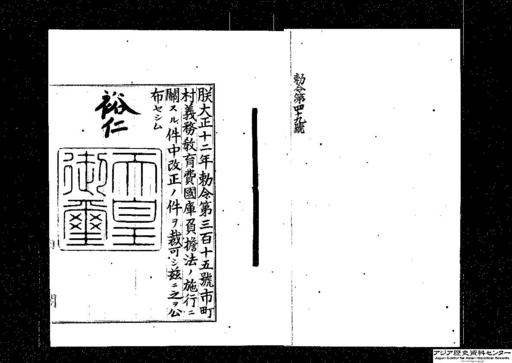 勅令第四十九號
朕大正十二年勅令第三百十五號市町
村義務教育費國庫負擔法ノ施行ニ
關スル件中改正ノ件ヲ裁可シ茲ニ之ヲ公
布セシム
裕仁
天皇
御璽
アジア歴史資料センター
Japan Center for Asian Historical Records